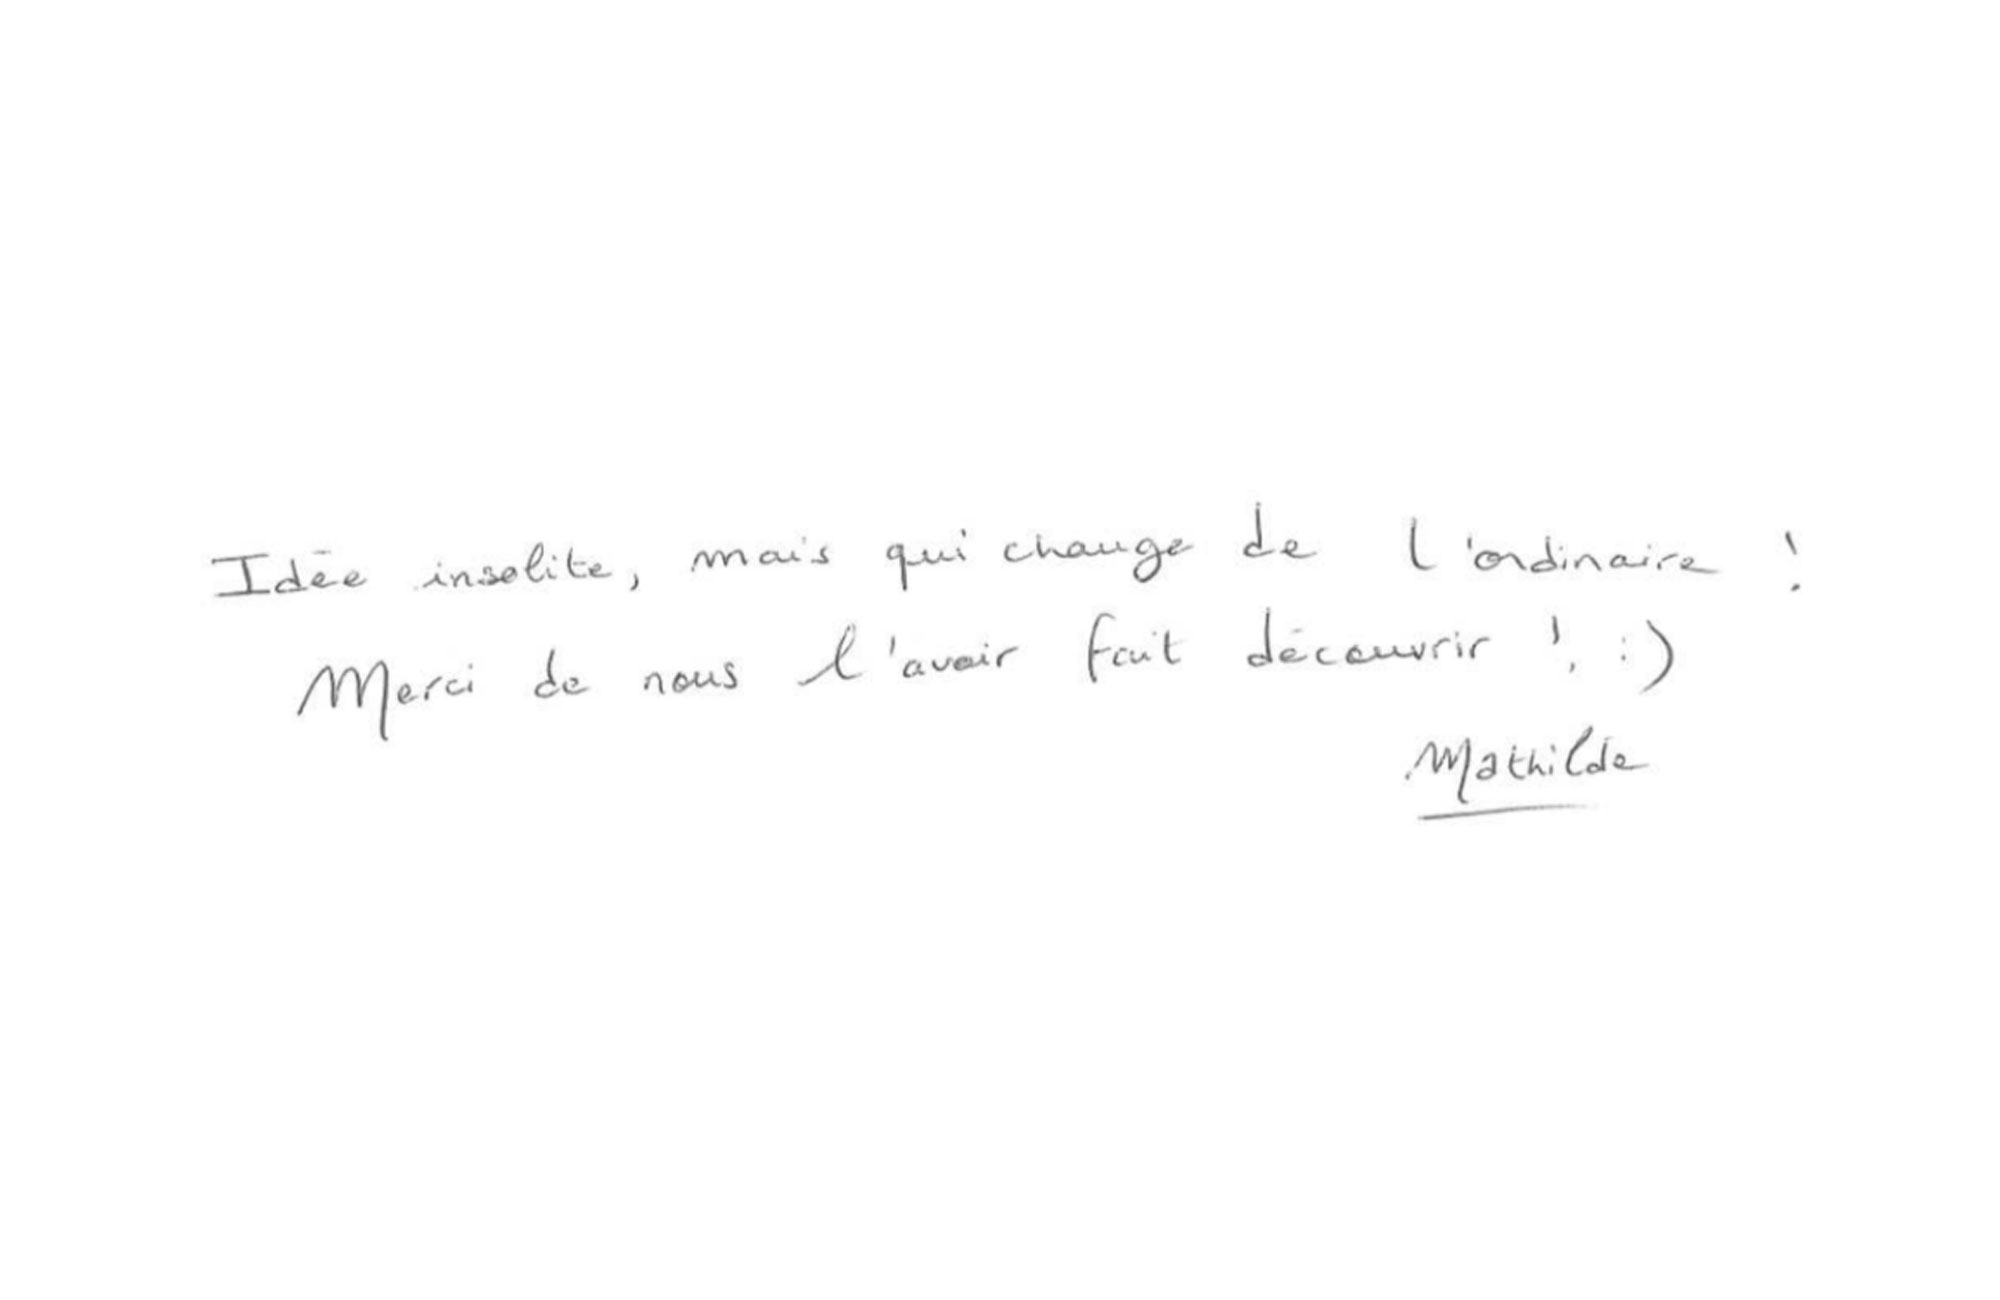 Idée insolite, mais qui change de l'ordinaire !
Merci de nous l'avoir fait découvrir ! :)
Mathilde